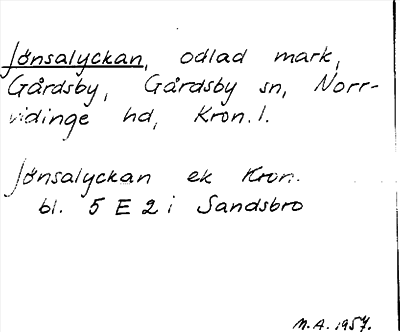 Jönsalyckan, odlad mark,
Gårdsby, Gårdsby sn, Norr-
vidinge hd, Kron. l.
Jönsalyckan ek Kron.
bl. 5 E 2 i Sandsbro
M.A. 1957.